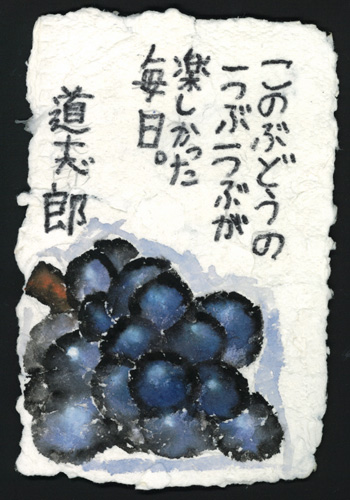 このぶどうの
一つぶ一つぶが
楽しかった
毎日。
道志郎